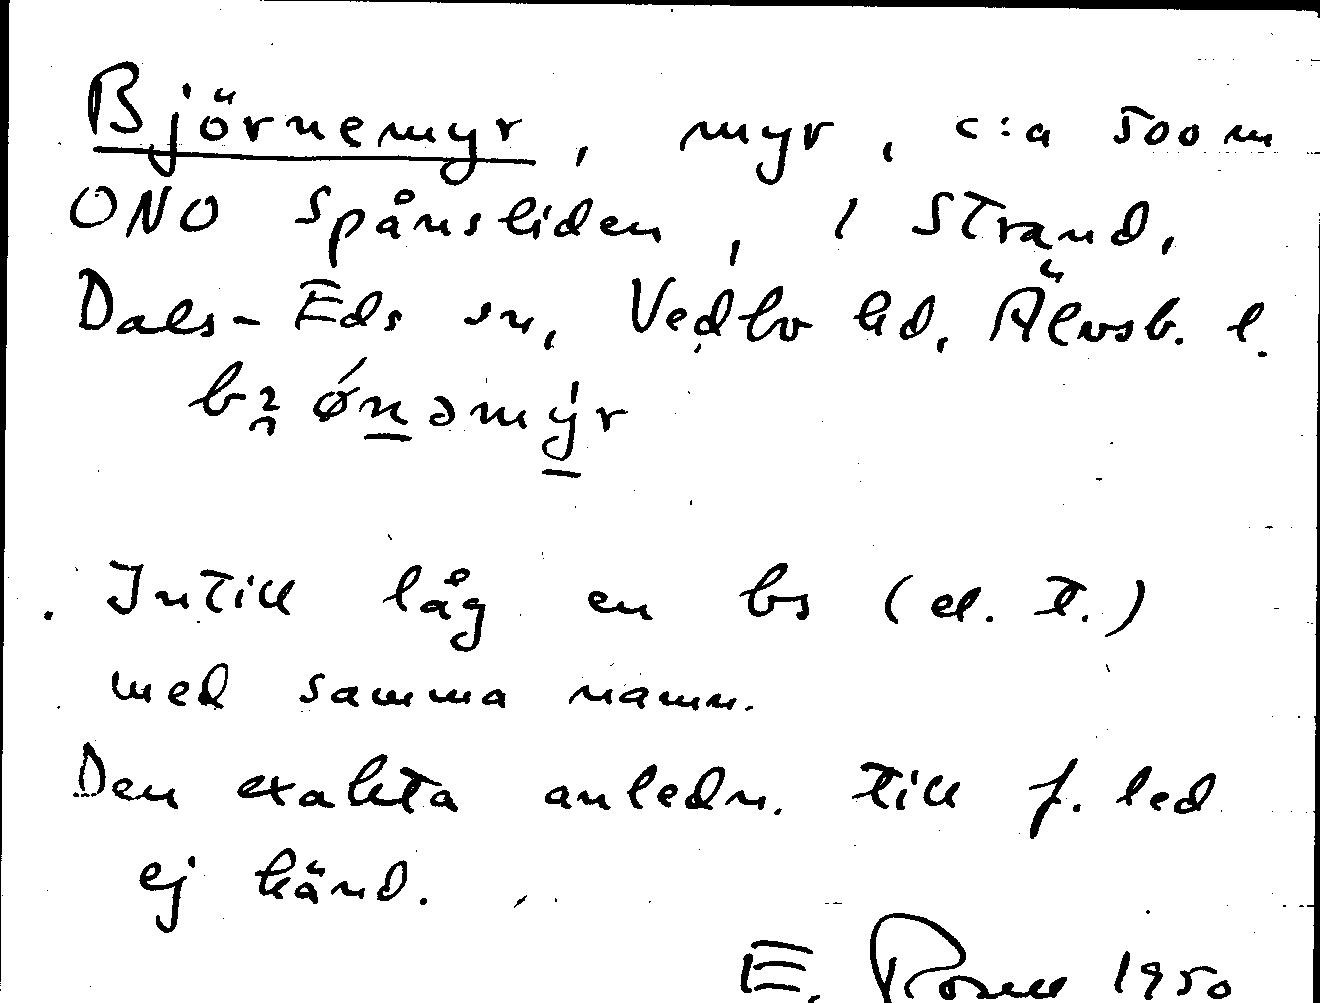 Björnemyr, myr, c:a 500 m
ONO Spånsliden, i Strand,
Dals-Eds sn, Vedbo hd, Älvsb. l.
Intill låg en bs (el. t.)
med samma namn.
Den exakta anledn. till f. led
ej känd.
E. 1950